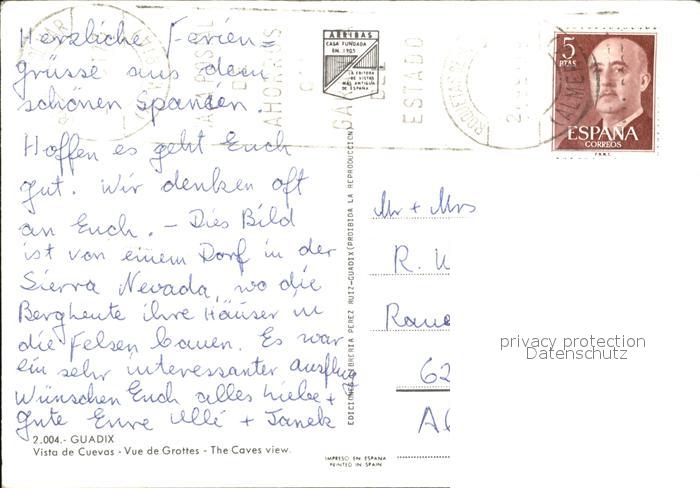 Herzliche Ferien=
grüsse aus dem
schönen Spanien.
Hoffen es geht Euch
gut. Wir denken oft
an Euch. - Dies Bild
ist von einem Dorf in der
Sierra Nevada, wo die
Bergleute ihre Häuser in
die Felsen bauen. Es war
ein sehr interessanter Ausflug
Wünschen Euch alles Liebe +
Gute Eure Ulli + Janek
2.004.- GUADIX
Vista de Cuevas - Vue de Grottes - The Caves view.
ARRIBAS
CASA FUNDADA
EN 1905
LA EDITORA
DE VISTAS
MAS ANTIGUA
DE ESPAÑA
EDICIONES LIBRERIA PEREZ RUIZ-GUADIX (PROHIBIDA LA REPRODUCCION)
IMPRESO EN ESPAÑA
PRINTED IN SPAIN
AHORRAS
DEL
ESTADO
5
PTAS
ESPAÑA
CORREOS
F.N.M.T.
Mr + Mrs
R.
62
privacy protection
Datenschutz